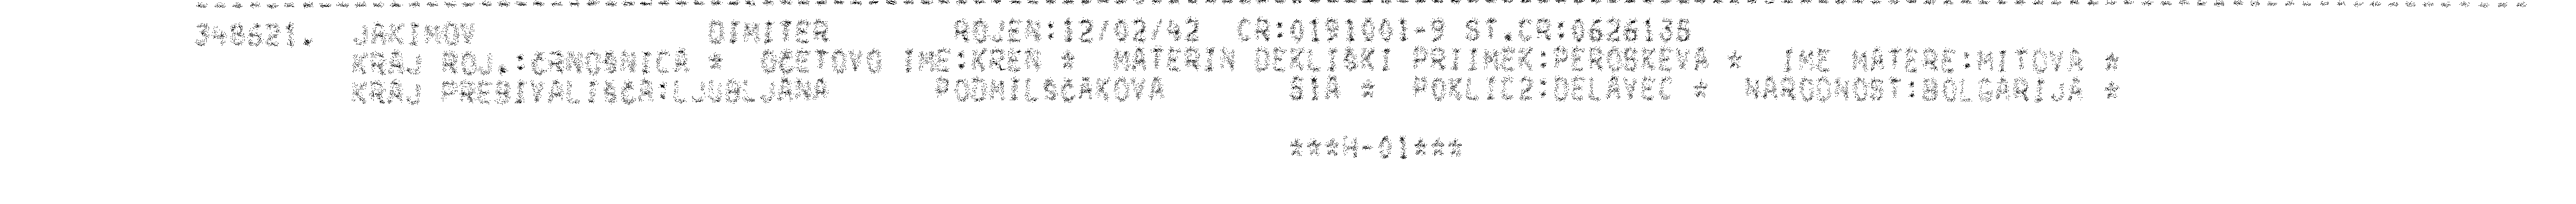 348521. JAKIMOV DIMITER ROJEN:12/02/42 CR:0191001-9 ST.CR:0626135
KRAJ ROJ.:CRNOSNICA * OČETOVO IME:KREN * MATERIN DEKLIŠKI PRIIMEK:PEROSKEVA * IME MATERE:MITOVA *
KRAJ PREBIVALIŠČA:LJUBLJANA PODMILŠČAKOVA 51A * POKLIC2:DELAVEC * NARODNOST:BOLGARIJA *
***H-01***